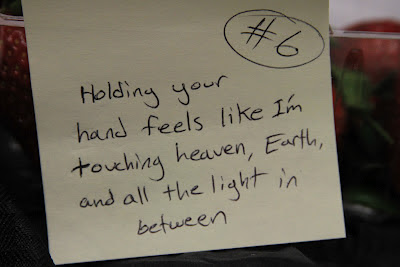 #6
Holding your
hand feels like I'm
touching heaven, Earth,
and all the light in
between